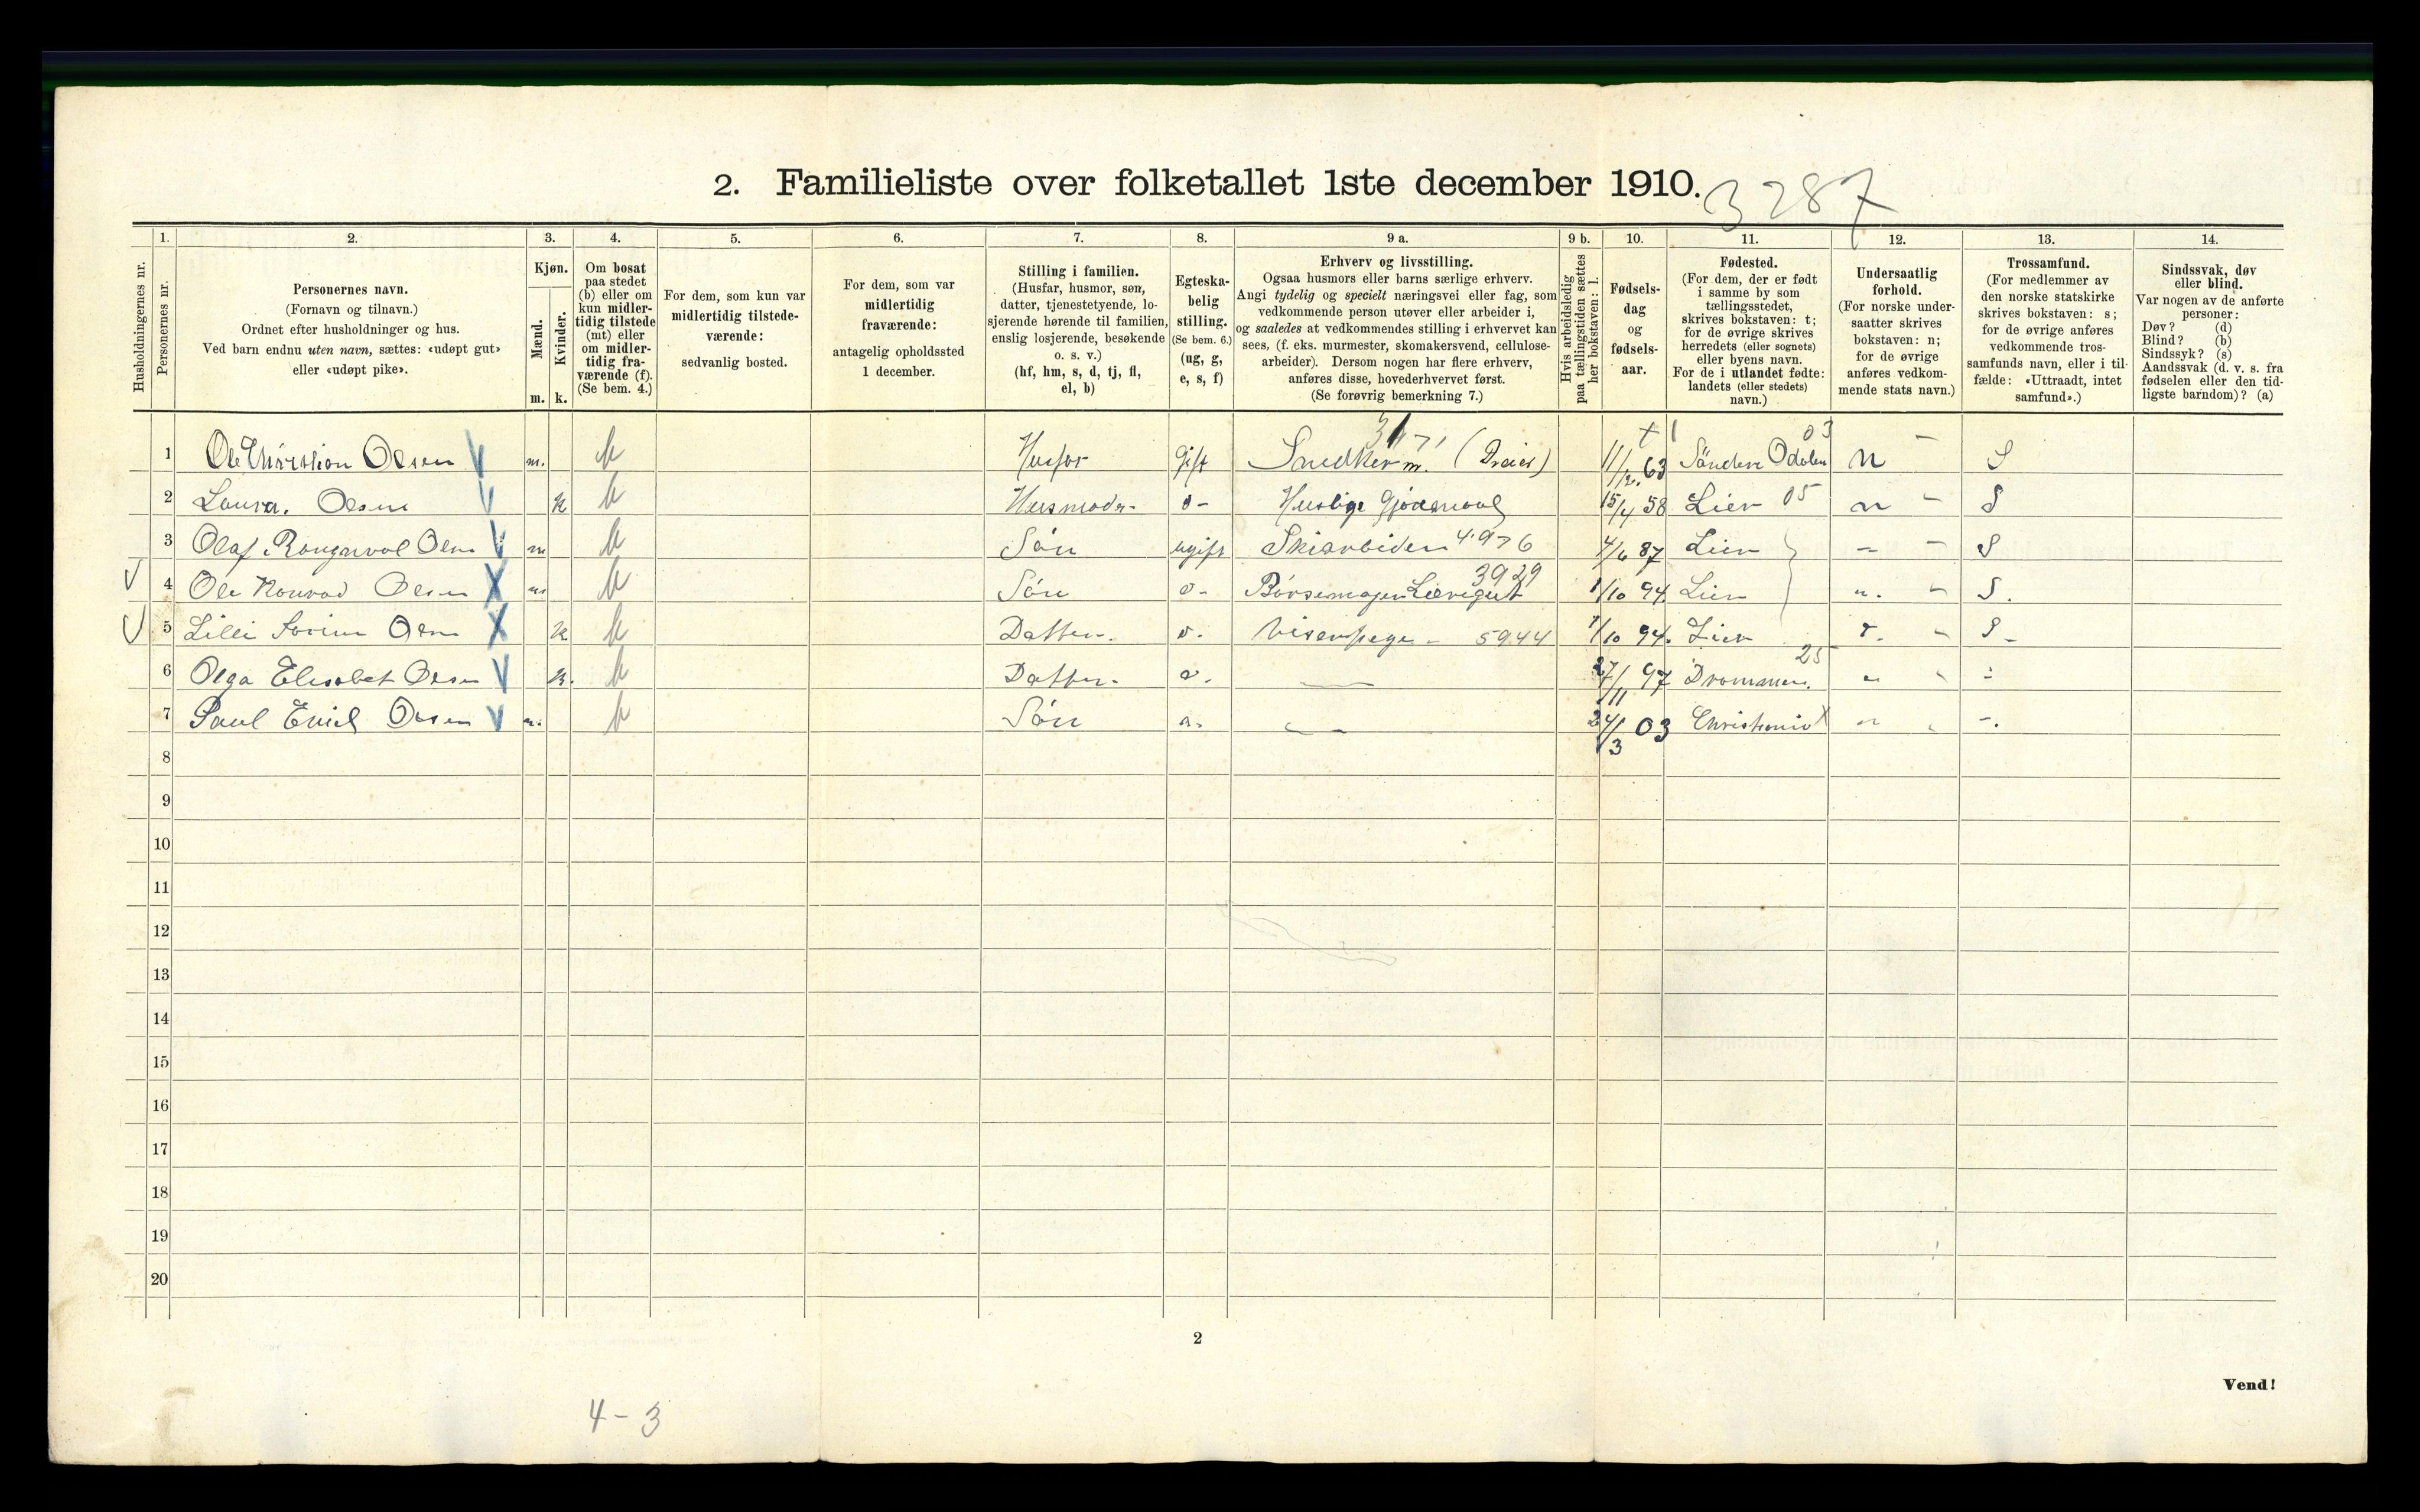 2. Familieliste over folketallet 1ste december 1910.
3287
1. 2. 3. 4. 5. 6. 7. 8. 9 a. 9 b. 10. 11. 12. 13. 14.
Husholdningernes nr.
Personernes nr.
Personernes navn.
(Fornavn og tilnavn.)
Ordnet efter husholdninger og hus.
Ved barn endnu uten navn, sættes: «udøpt gut»
eller «udøpt pike».
Kjøn.
Mænd.
Kvinder.
m. k.
Om bosat
paa stedet
(b) eller om
kun midler-
tidig tilstede
(mt) eller
om midler-
tidig fra-
værende (f).
(Se bem. 4.)
For dem, som kun var
midlertidig tilstede-
værende:
sedvanlig bosted.
For dem, som var
midlertidig
fraværende:
antagelig opholdssted
1 december.
Stilling i familien.
(Husfar, husmor, søn,
datter, tjenestetyende, lo-
sjerende hørende til familien,
enslig losjerende, besøkende
o. s. v.)
(hf, hm, s, d, tj, fl,
el, b)
Egteska-
belig
stilling.
(Se bem. 6.)
(ug, g,
e, s, f)
Erhverv og livsstilling.
Ogsaa husmors eller barns særlige erhverv.
Angi tydelig og specielt næringsvei eller fag, som
vedkommende person utøver eller arbeider i,
og saaledes at vedkommendes stilling i erhvervet kan
sees, (f. eks. murmester, skomakersvend, cellulose-
arbeider). Dersom nogen har flere erhverv,
anføres disse, hovederhvervet først.
(Se forøvrig bemerkning 7.)
Hvis arbeidsledig
paa tællingstiden sættes
her bokstaven: l.
Fødsels-
dag
og
fødsels-
aar.
Fødested.
(For dem, der er født
i samme by som
tællingsstedet,
skrives bokstaven: t;
for de øvrige skrives
herredets (eller sognets)
eller byens navn.
For de i utlandet fødte:
landets (eller stedets)
navn.)
Undersaatlig
forhold.
(For norske under-
saatter skrives
bokstaven: n;
for de øvrige
anføres vedkom-
mende stats navn.)
Trossamfund.
(For medlemmer av
den norske statskirke
skrives bokstaven: s;
for de øvrige anføres
vedkommende tros-
samfunds navn, eller i til-
fælde: «Uttraadt, intet
samfund».)
Sindssvak, døv
eller blind.
Var nogen av de anførte
personer:
Døv? (d)
Blind? (b)
Sindssyk? (s)
Aandssvak (d. v. s. fra
fødselen eller den tid-
ligste barndom)? (a)
1 Ole Christian Olsen V m. b Husfar Gift Snedker m. (Dreier) 11/2. 63 Søndre Odalen 03 N - S
2 Laura. Olsen V k b Husmoder- o- Huslige Gjøremaal 15/4 58 Lier 05 n - S
3 Olaf Rangnval Olsen V m b Søn ugift Skiarbeider 4976 4/6 87 Lier - - S
4 Ole Konrad Olsen X m b Søn o- Børsemager Læregut 3929 1/10 94 Lier ". - S.
5 Lilli Olsen X k b Datter. o. Viserpige - 5944 1/10 94. Lier - S-
6 Olga Elisabet Olsen V k. b Datter- o. — 27/11 97 Drammen. 25 " -
7 Paul Emil Olsen V m. b Søn — 24/3 03 Christania X " -.
8
9
10
11
12
13
14
15
16
17
18
19
20
2
Vend!
4 - 3